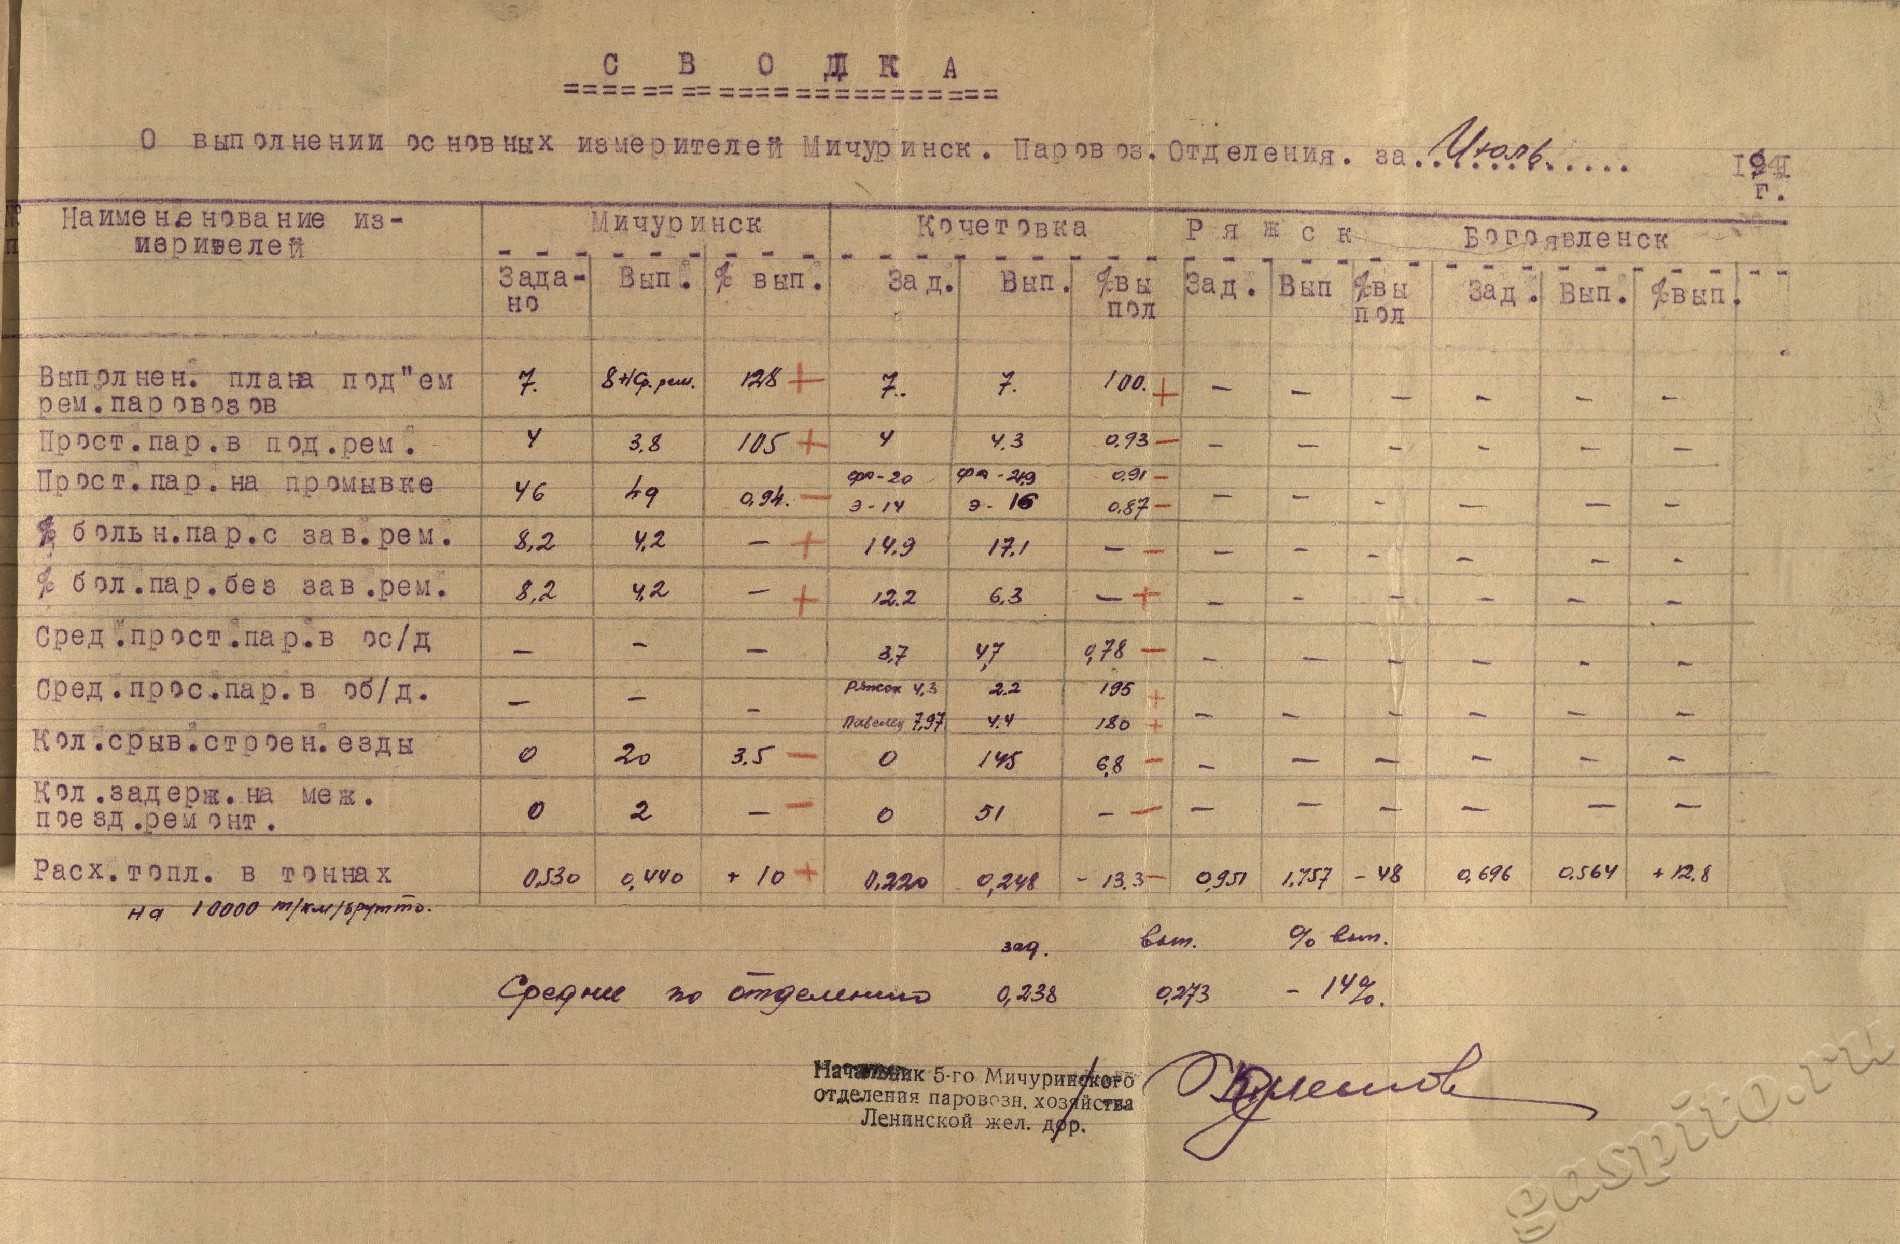 С В О Д К А
О выполнении основных измерителей Мичуринск. Паровоз. Отделения. за Июль 1941 г.
Наименование из- Мичуринск Кочетовка Ряжск Богоявленск
мерителей
Зада- Вып. % вып. Зад. Вып. %вы Зад. Вып %вы Зад. Вып. %вып.
но пол пол
Выполнен. плана под"ем 7. 8+1ср.рем. 128 + 7. 7. 100. + - - - - - -
рем.паровозов
Прост.пар.в под.рем. 4 3,8 105 + 4 4,3 0,93 - - - - - - -
Прост.пар.на промывке 46 49 0,94. - фд-20 фд-21,9 0,91 -
э-14 э-16 0,87 - - - - - - -
% больн.пар.с зав.рем. 8,2 4,2 - + 14,9 17,1 - - - - - - - -
% бол.пар.без зав.рем. 8,2 4,2 - + 12.2 6,3 - + - - - - - -
Сред.прост.пар.в ос/д - - - 3,7 4,7 0,78 - - - - - - -
Сред.прос.пар.в об/д. - - - Ряжск 4,3 2.2 195 +
Павелец 7,97 4.4 180 + - - - - - -
Кол.срыв.строен.езды 0 20 3.5 - 0 145 6,8 - - - - - - -
Кол.задерж.на меж. 0 2 - - 0 51 - - - - - - - -
поезд.ремонт.
Расх.топл. в тоннах 0,530 0,440 +10 + 0,220 0,248 -13.3 - 0,951 1,757 -48 0,696 0,564 +12,8
на 10000 т/км/брутто.
зад. вып. % вып.
Средние по отделению 0,238 0,273 -14%.
Начальник 5-го Мичуринского
отделения паровозн. хозяйства
Ленинской жел. дор.
gaspito.ru